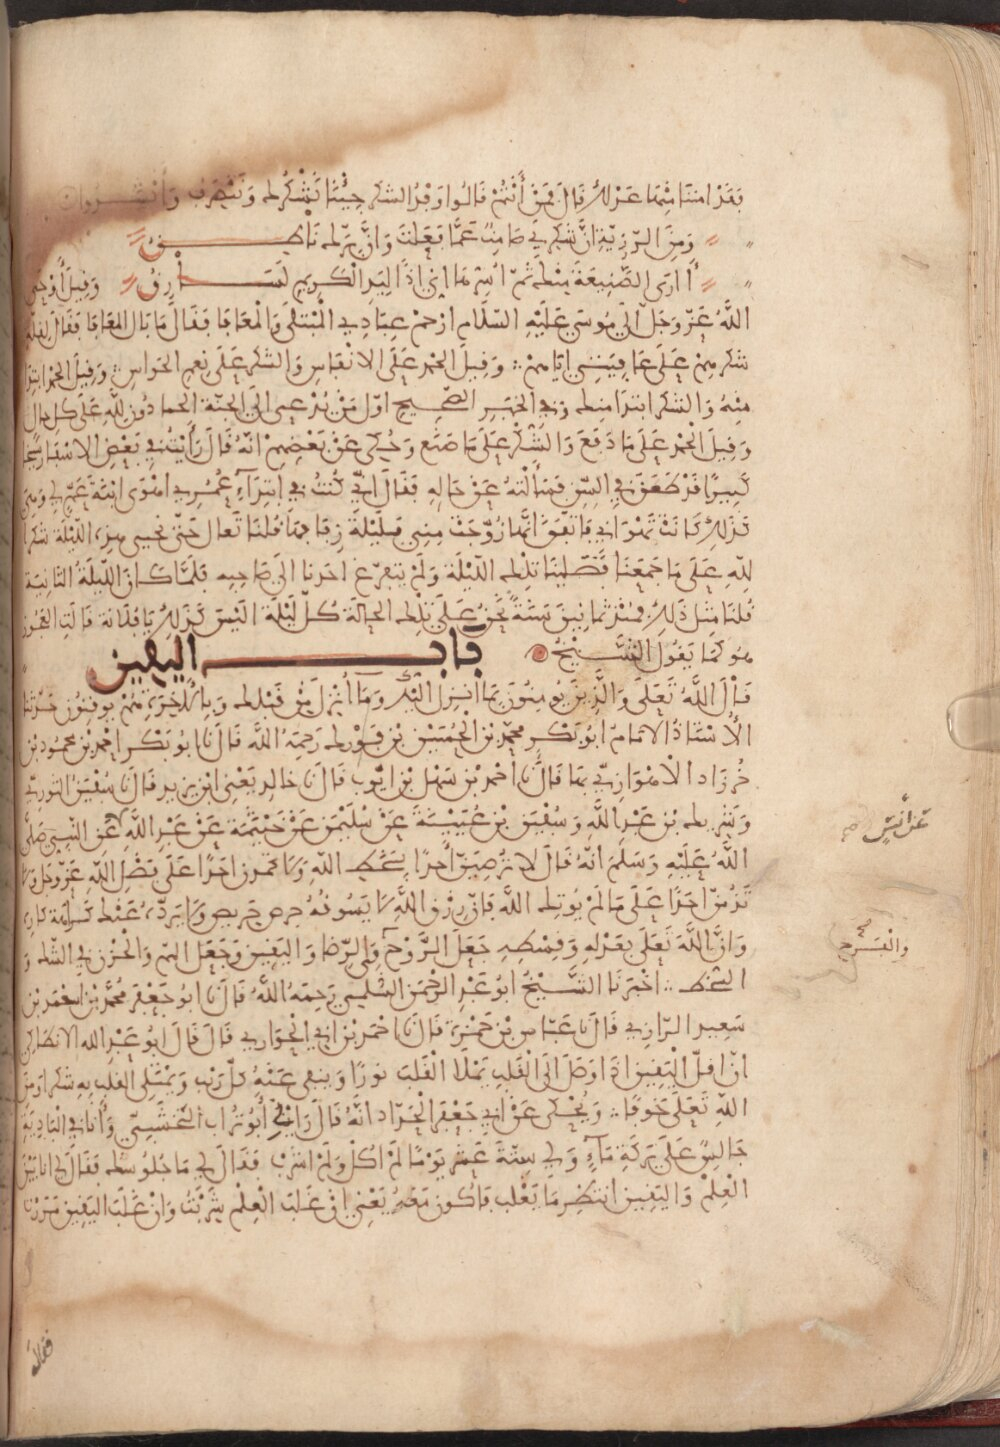 فقد امننا منها عدلك قال فمن أنتم قالوا وفد الشكر جئنا نشكرك وننصرف وأنشدوا
ومن الرزية ان شكري صامت عما فعلت وان برك ناطق
أأرى الصنيعة منك ثم أسرها اني اذا ليد الكريم لسارق وقيل أوحى
الله عز وجل الى موسى عليه السلام ارحم عبادي المبتلى والمعافا فقال ما بال المعافا فقال لقلة
شكرهم على عافيتي اياهم وقيل الحمد على الانفاس والشكر على نعم الحواس وقيل الحمد ابتدا
منه والشكر ابتدا منك وفي الخبر الصحيح اول من يدعى الى الجنة الحمادون لله على كل حال
وقيل الحمد على ما دفع والشكر على ما صنع وحكى عن بعضهم انه قال رأيت في بعض الاسفار شيخا
كبيرا قد طعن في السن فسألته عن حاله فقال اني كنت في ابتداء عمري اهوى ابنة عم لي وهي
كذلك كانت تهواني فاتفق انها زوجت مني فليلة زفافها قلنا تعال حتى نحيي هذه الليلة شكرا
لله على ما جمعنا فصلينا تلك الليلة ولم يتفرغ احدنا الى صاحبه فلما كان الليلة الثانية
قلنا مثل ذلك فمنذ ثمانين سنة نحن على تلك الحالة كل ليلة اليس كذلك يا فلانة قالت العجوز
هو كما يقول الشيخ
باب اليقين
قال الله تعلى والذين يومنون بما انزل اليك وما أنزل من قبلك وبالاخرة هم يوقنون حدثنا
الاستاذ الامام ابو بكر محمد بن الحسين بن فورك رحمه الله قال نا ابو بكر احمد بن محمود بن
خرزاد الاهوازي بها قال نا احمد بن سهل بن ايوب قال نا خالد يعني ابن يزيد قال نا سفين الثوري
وشريك بن عبد الله وسفين بن عيينة عن سليمن عن خيثمة عن عبد الله عن النبي صلى
الله عليه وسلم انه قال لا ترضين أحدا بسخط الله ولا تحمدن احدا على فضل الله عز وجل ولا
تذمن احدا على ما لم يوتك الله فان رزق الله لا يسوقه حرص حريص ولا يرده عنك كراهة كاره
وان الله تعلى بعدله وقسطه جعل الروح في الرضا واليقين وجعل الهم والحزن في الشك و
السخط اخبرنا الشيخ ابو عبد الرحمن السلمي رحمه الله قال نا ابو جعفر محمد بن احمد بن
سعيد الرازي قال نا عباس بن حمزة قال نا احمد بن ابي الحواري قال قال ابو عبد الله الانطاكي
ان اقل اليقين اذا وصل الى القلب يملا القلب نورا وينفى عنه كل ريب ويمتلى القلب به شكرا ومن
الله تعلى خوفا ويحكى عن ابي جعفر الحداد انه قال رآني أبو تراب النخشبي وأنا في البادية
جالس على بركة ماء ولي ستة عشر يوما لم اكل ولم اشرب فقال لي ما جلوسك فقال لي انا بين
العلم واليقين انتظر ما يغلب فاكون معه يعني ان غلب العلم شربت وان غلب اليقين مررت
عن أنس صح
والفرح صح
فقال